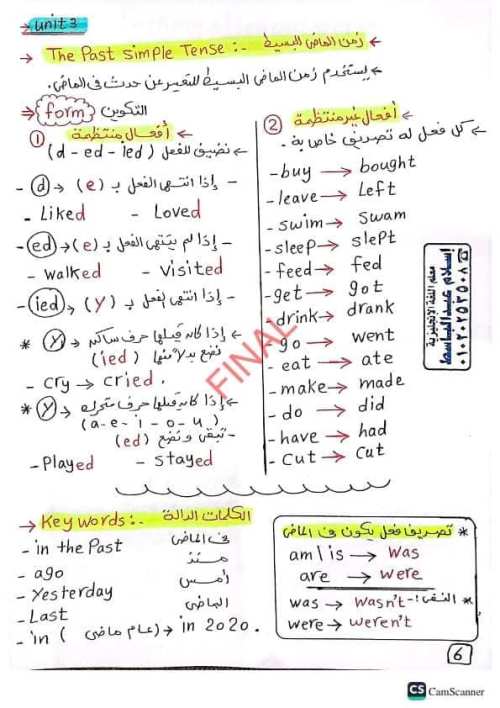 → unit 3
→ The Past Simple Tense :- زمن الماضى البسيط
يستخدم زمن الماضى البسيط للتعبير عن حدث فى الماضى.
⇒ form التكوين
① أفعال منتظمة
نضيف للفعل (d - ed - ied)
- ⓓ → (e) إذا انتهى الفعل بـ -
- Liked - Loved
- (ed) → (e) إذا لم ينتهى الفعل بـ -
- walked - visited
- (ied) → (y) إذا انتهى الفعل بـ -
* (y) → إذا كان قبلها حرف ساكن
نضع بدلاً منها (ied)
- cry → cried .
* (y) → إذا كان قبلها حرف متحرك
(a - e - i - o - u)
- تبقى ونضع (ed)
- Played - stayed
② أفعال غير منتظمة
كل فعل له تصريف خاص به .
- buy → bought
- leave → Left
- swim → swam
- sleep → slept
- feed → fed
- get → got
- drink → drank
- go → went
- eat → ate
- make → made
- do → did
- have → had
- cut → cut
إسلام عبدالباسط
معلم اللغة الإنجليزية
FINAL
→ Key words :- الكلمات الدالة
- in the Past فى الماضى
- ago منذ
- Yesterday أمس
- Last الماضى
- in (عام ماضى) → in 2020 .
* تصريف فعل يكون فى الماضى
am | is → was
are → were
* النفى :-
was → wasn't
were → weren't
6
CS CamScanner